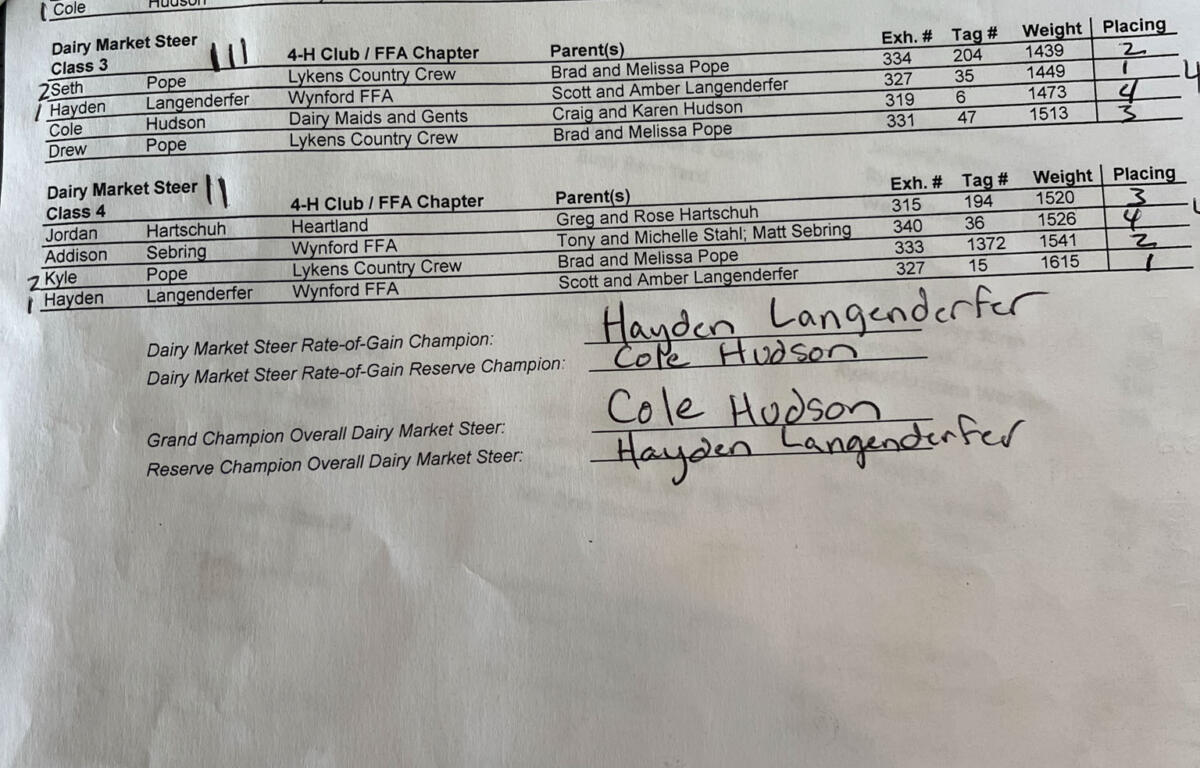 1 Cole Hudson
Dairy Market Steer III
Class 3 4-H Club / FFA Chapter Parent(s) Exh. # Tag # Weight Placing
2 Seth Pope Lykens Country Crew Brad and Melissa Pope 334 204 1439 2
1 Hayden Langenderfer Wynford FFA Scott and Amber Langenderfer 327 35 1449 1
Cole Hudson Dairy Maids and Gents Craig and Karen Hudson 319 6 1473 4
Drew Pope Lykens Country Crew Brad and Melissa Pope 331 47 1513 3
Dairy Market Steer II
Class 4 4-H Club / FFA Chapter Parent(s) Exh. # Tag # Weight Placing
Jordan Hartschuh Heartland Greg and Rose Hartschuh 315 194 1520 3
Addison Sebring Wynford FFA Tony and Michelle Stahl; Matt Sebring 340 36 1526 4
2 Kyle Pope Lykens Country Crew Brad and Melissa Pope 333 1372 1541 2
1 Hayden Langenderfer Wynford FFA Scott and Amber Langenderfer 327 15 1615 1
Dairy Market Steer Rate-of-Gain Champion: Hayden Langenderfer
Dairy Market Steer Rate-of-Gain Reserve Champion: Cole Hudson
Grand Champion Overall Dairy Market Steer: Cole Hudson
Reserve Champion Overall Dairy Market Steer: Hayden Langenderfer